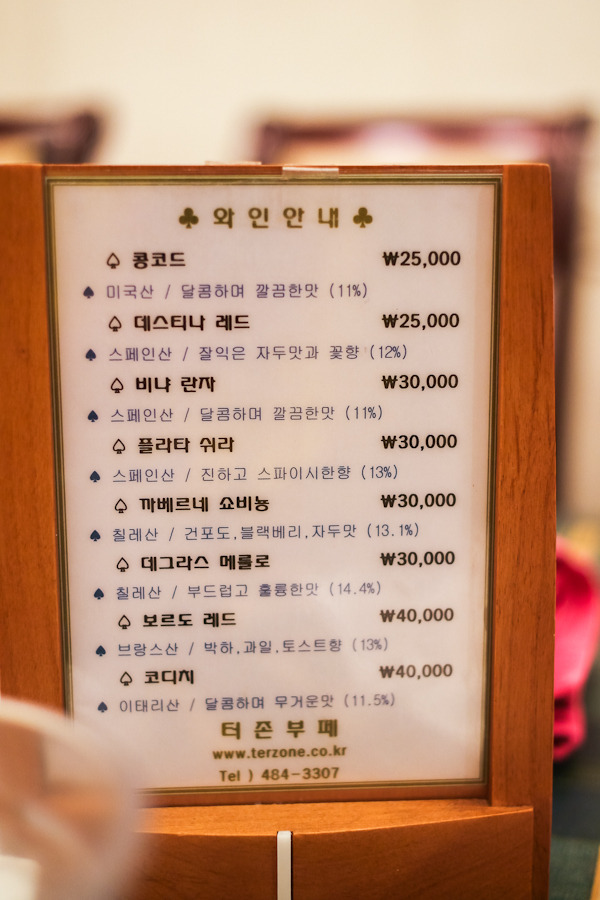 ♣ 와인안내 ♣
♤ 콩코드 ₩25,000
♠ 미국산 / 달콤하며 깔끔한맛 (11%)
♤ 데스티나 레드 ₩25,000
♠ 스페인산 / 잘익은 자두맛과 꽃향 (12%)
♤ 비냐 란자 ₩30,000
♠ 스페인산 / 달콤하며 깔끔한맛 (11%)
♤ 플라타 쉬라 ₩30,000
♠ 스페인산 / 진하고 스파이시한향 (13%)
♤ 까베르네 쇼비뇽 ₩30,000
♠ 칠레산 / 건포도,블랙베리,자두맛 (13.1%)
♤ 데그라스 메를로 ₩30,000
♠ 칠레산 / 부드럽고 훌륭한맛 (14.4%)
♤ 보르도 레드 ₩40,000
♠ 브랑스산 / 박하,과일,토스트향 (13%)
♤ 코디치 ₩40,000
♠ 이태리산 / 달콤하며 무거운맛 (11.5%)
터존부페
www.terzone.co.kr
Tel ) 484-3307